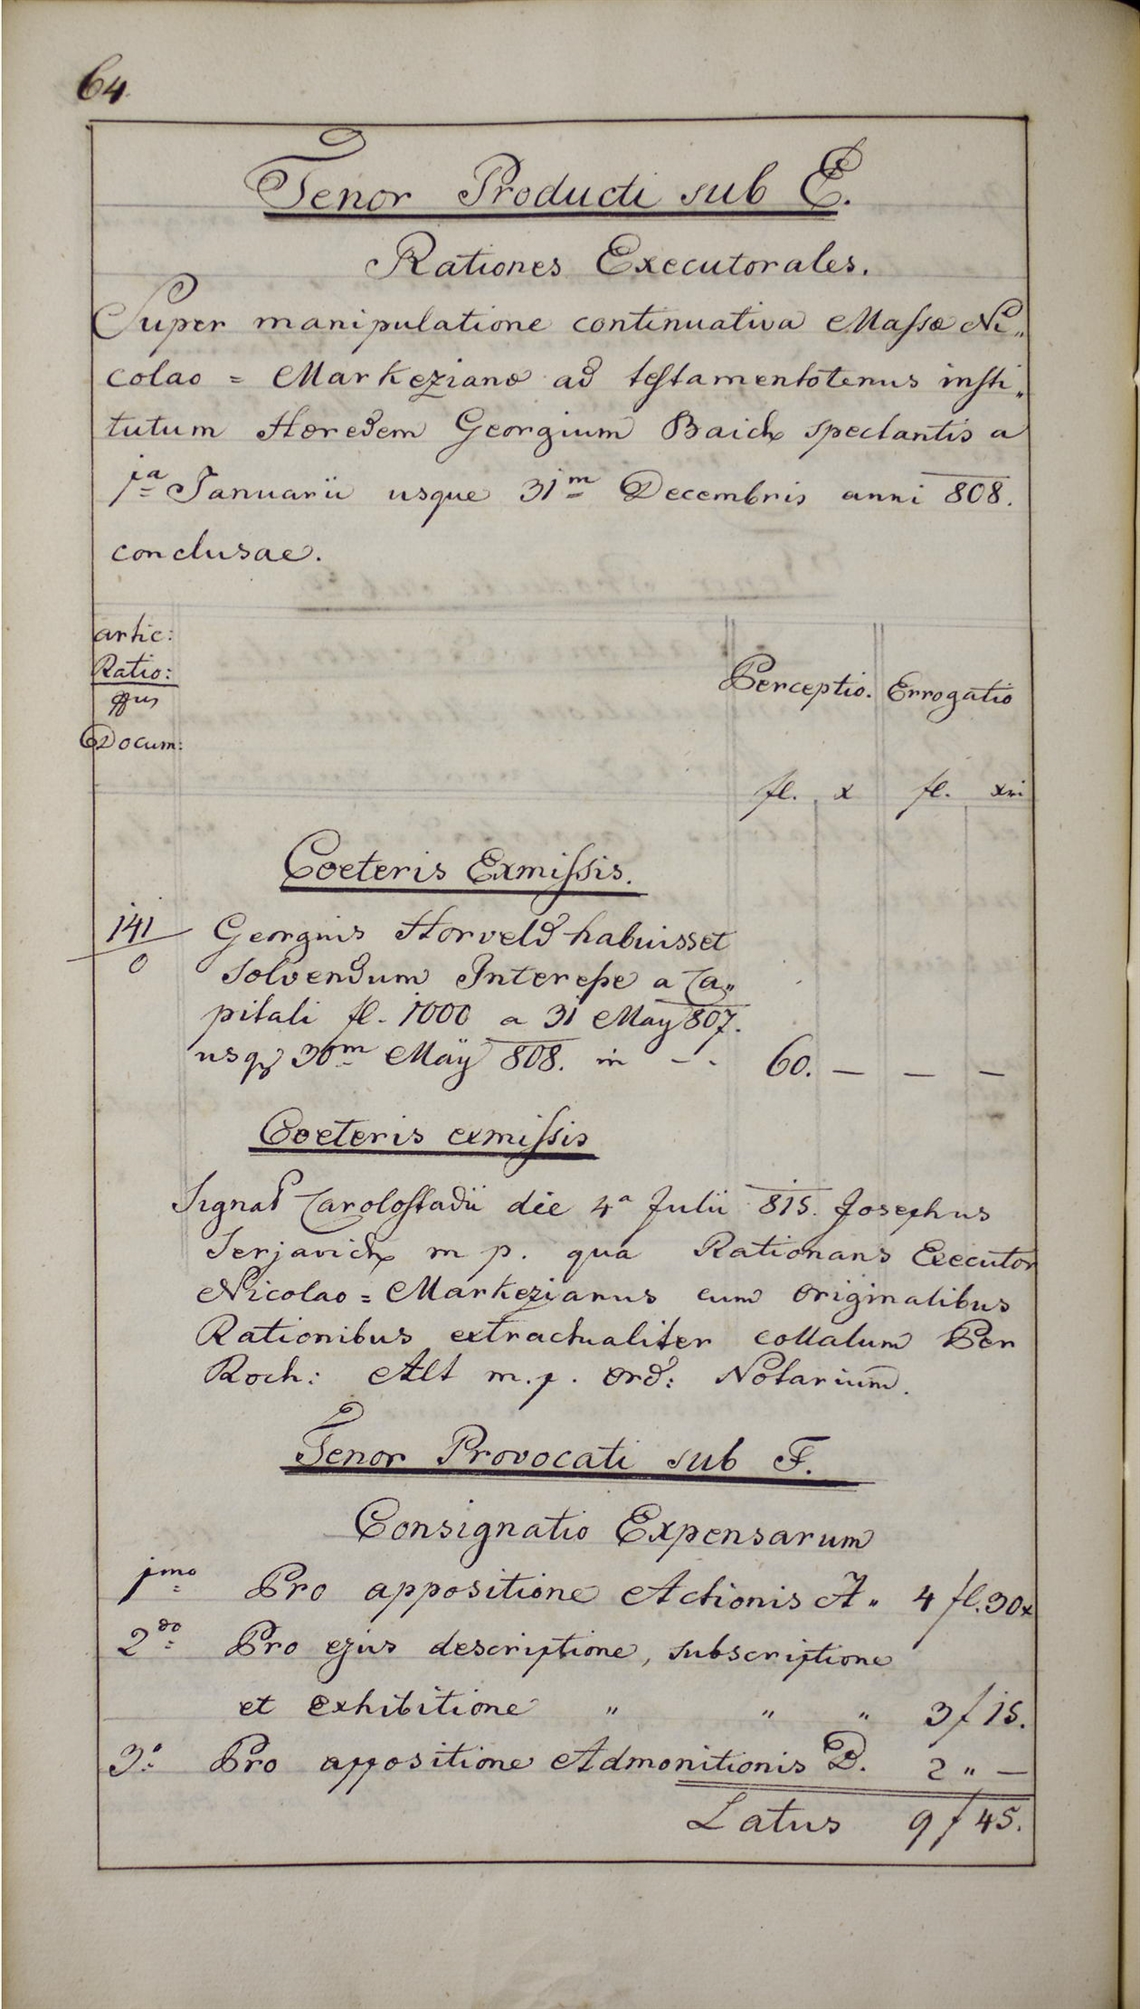 64
Tenor Producti sub E.
Rationes Executorales.
Super manipulatione continuativa Massæ Ni„
colao = Markezianæ ad testamentotenus insti„
tutum Hæredem Georgium Baich spectantis a
1a Januarii usque 31m Decembris anni 808.
conclusae.
artic:
Ratio:
Docum:
Perceptio. Errogatio
fl. x fl. xri
Coeteris Exmissis.
141/0 Georgius Horveld habuisset
solvendum Interesse a Ca„
pitali fl. 1000 a 31 May 807.
usq 30m Maÿ 808. in - - 60. — — —
Coeteris exmissis
Signat Carolostadii die 4a Julii 815. Josephus
Serjavich m p. qua Rationans Executor
Nicolao = Markezianus cum originalibus
Rationibus extractualiter collatum Per
Roch: Alt m.p. ord: Notarium.
Tenor Provocati sub F.
Consignatio Expensarum
1mo Pro appositione Actionis A „ 4 fl. 30x
2do Pro ejus descriptione, subscriptione
et exhibitione „ „ „ 3 f 15.
3o Pro appositione Admonitionis B. 2 „ —
Latus 9 f 45.